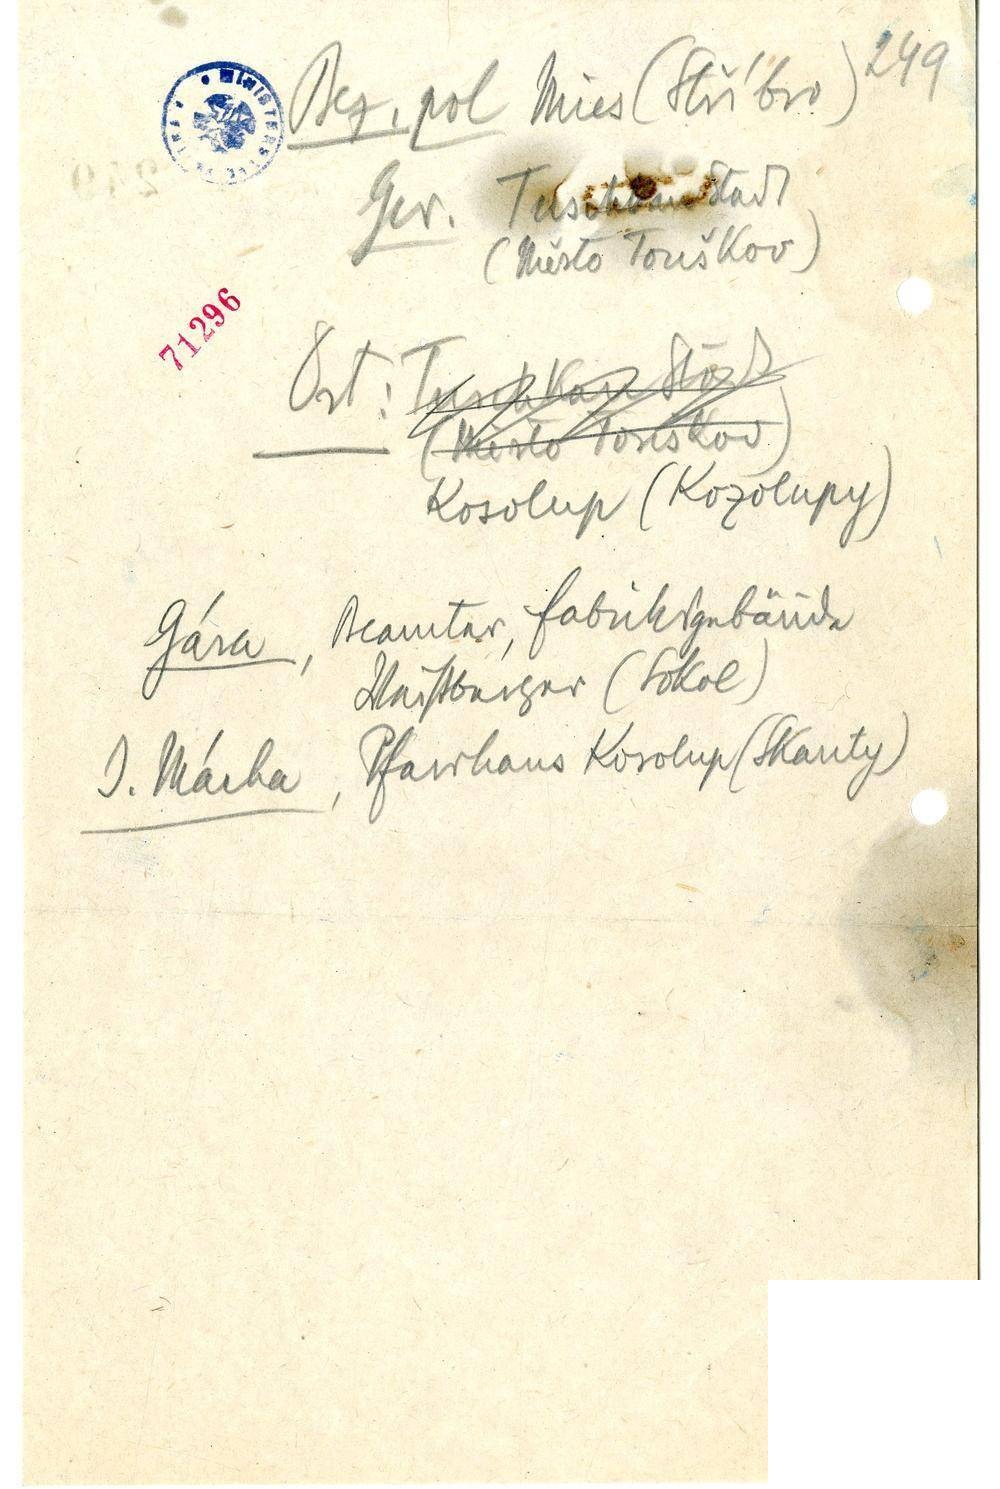 249
Bez. pol Mies (Stříbro)
Ger. Tuschkau Stadt
(Město Touškov)
71296
Ort: Tuschkau Stadt
(Město Touškov)
Kosolup (Kozolupy)
Gára, Beamter, Fabriksgebäude
Weißberger (Sokol)
J. Mácha, Pfarrhaus Kosolup (Skauty)